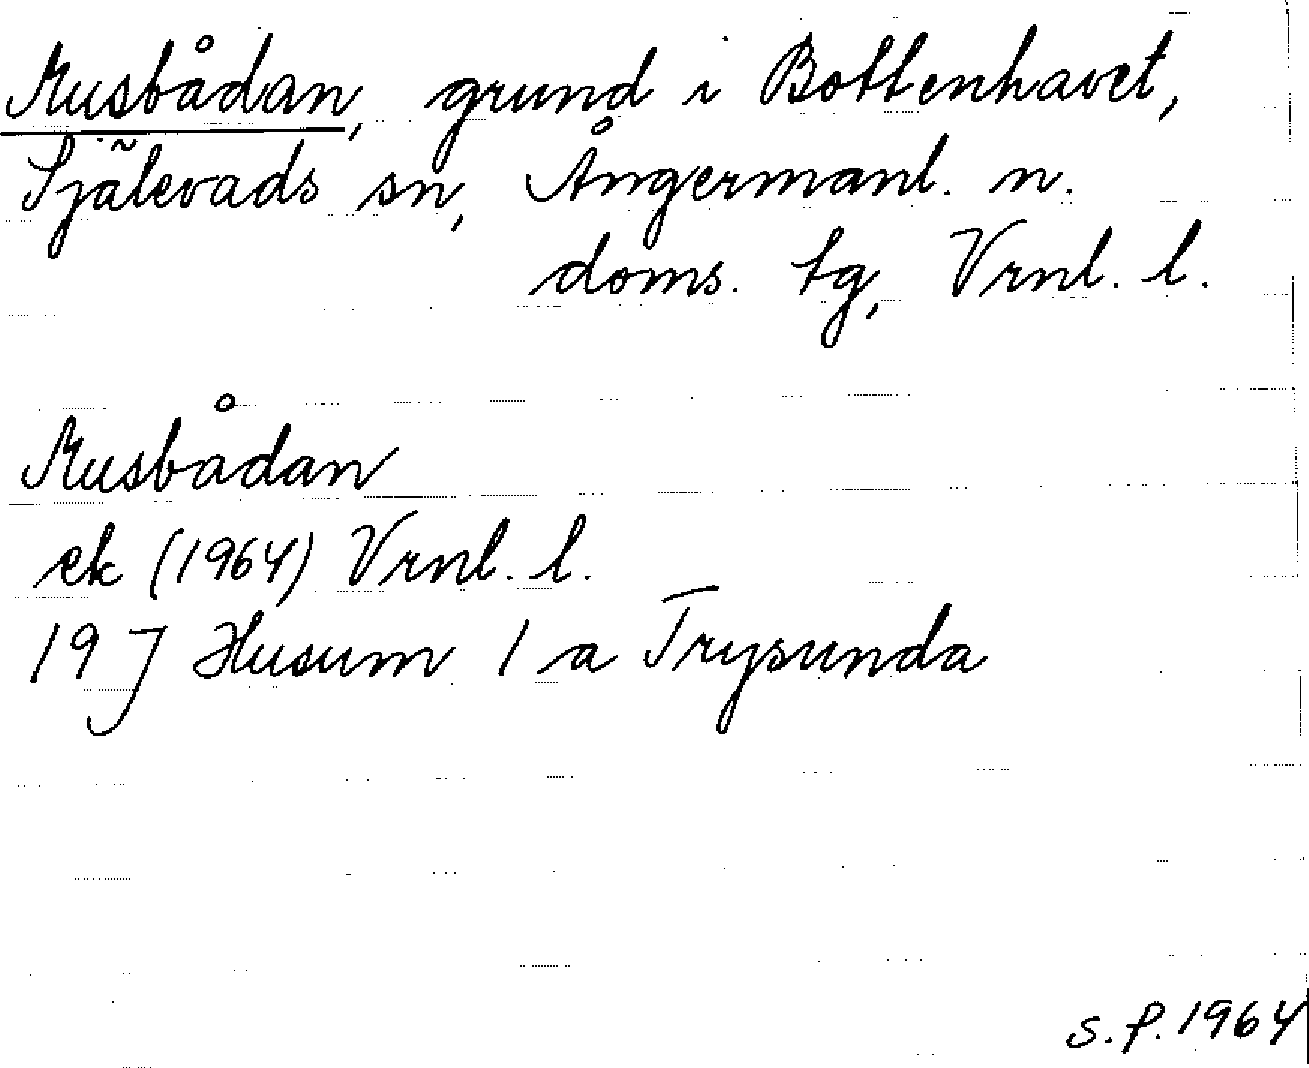 Musbådan, grund i Bottenhavet,
Själevads sn, Ångermanl. n.
doms. tg, Vrnl. l.
Musbådan
ek (1964) Vrnl. l.
19 J Husum 1 a Trysunda
s. f. 1964